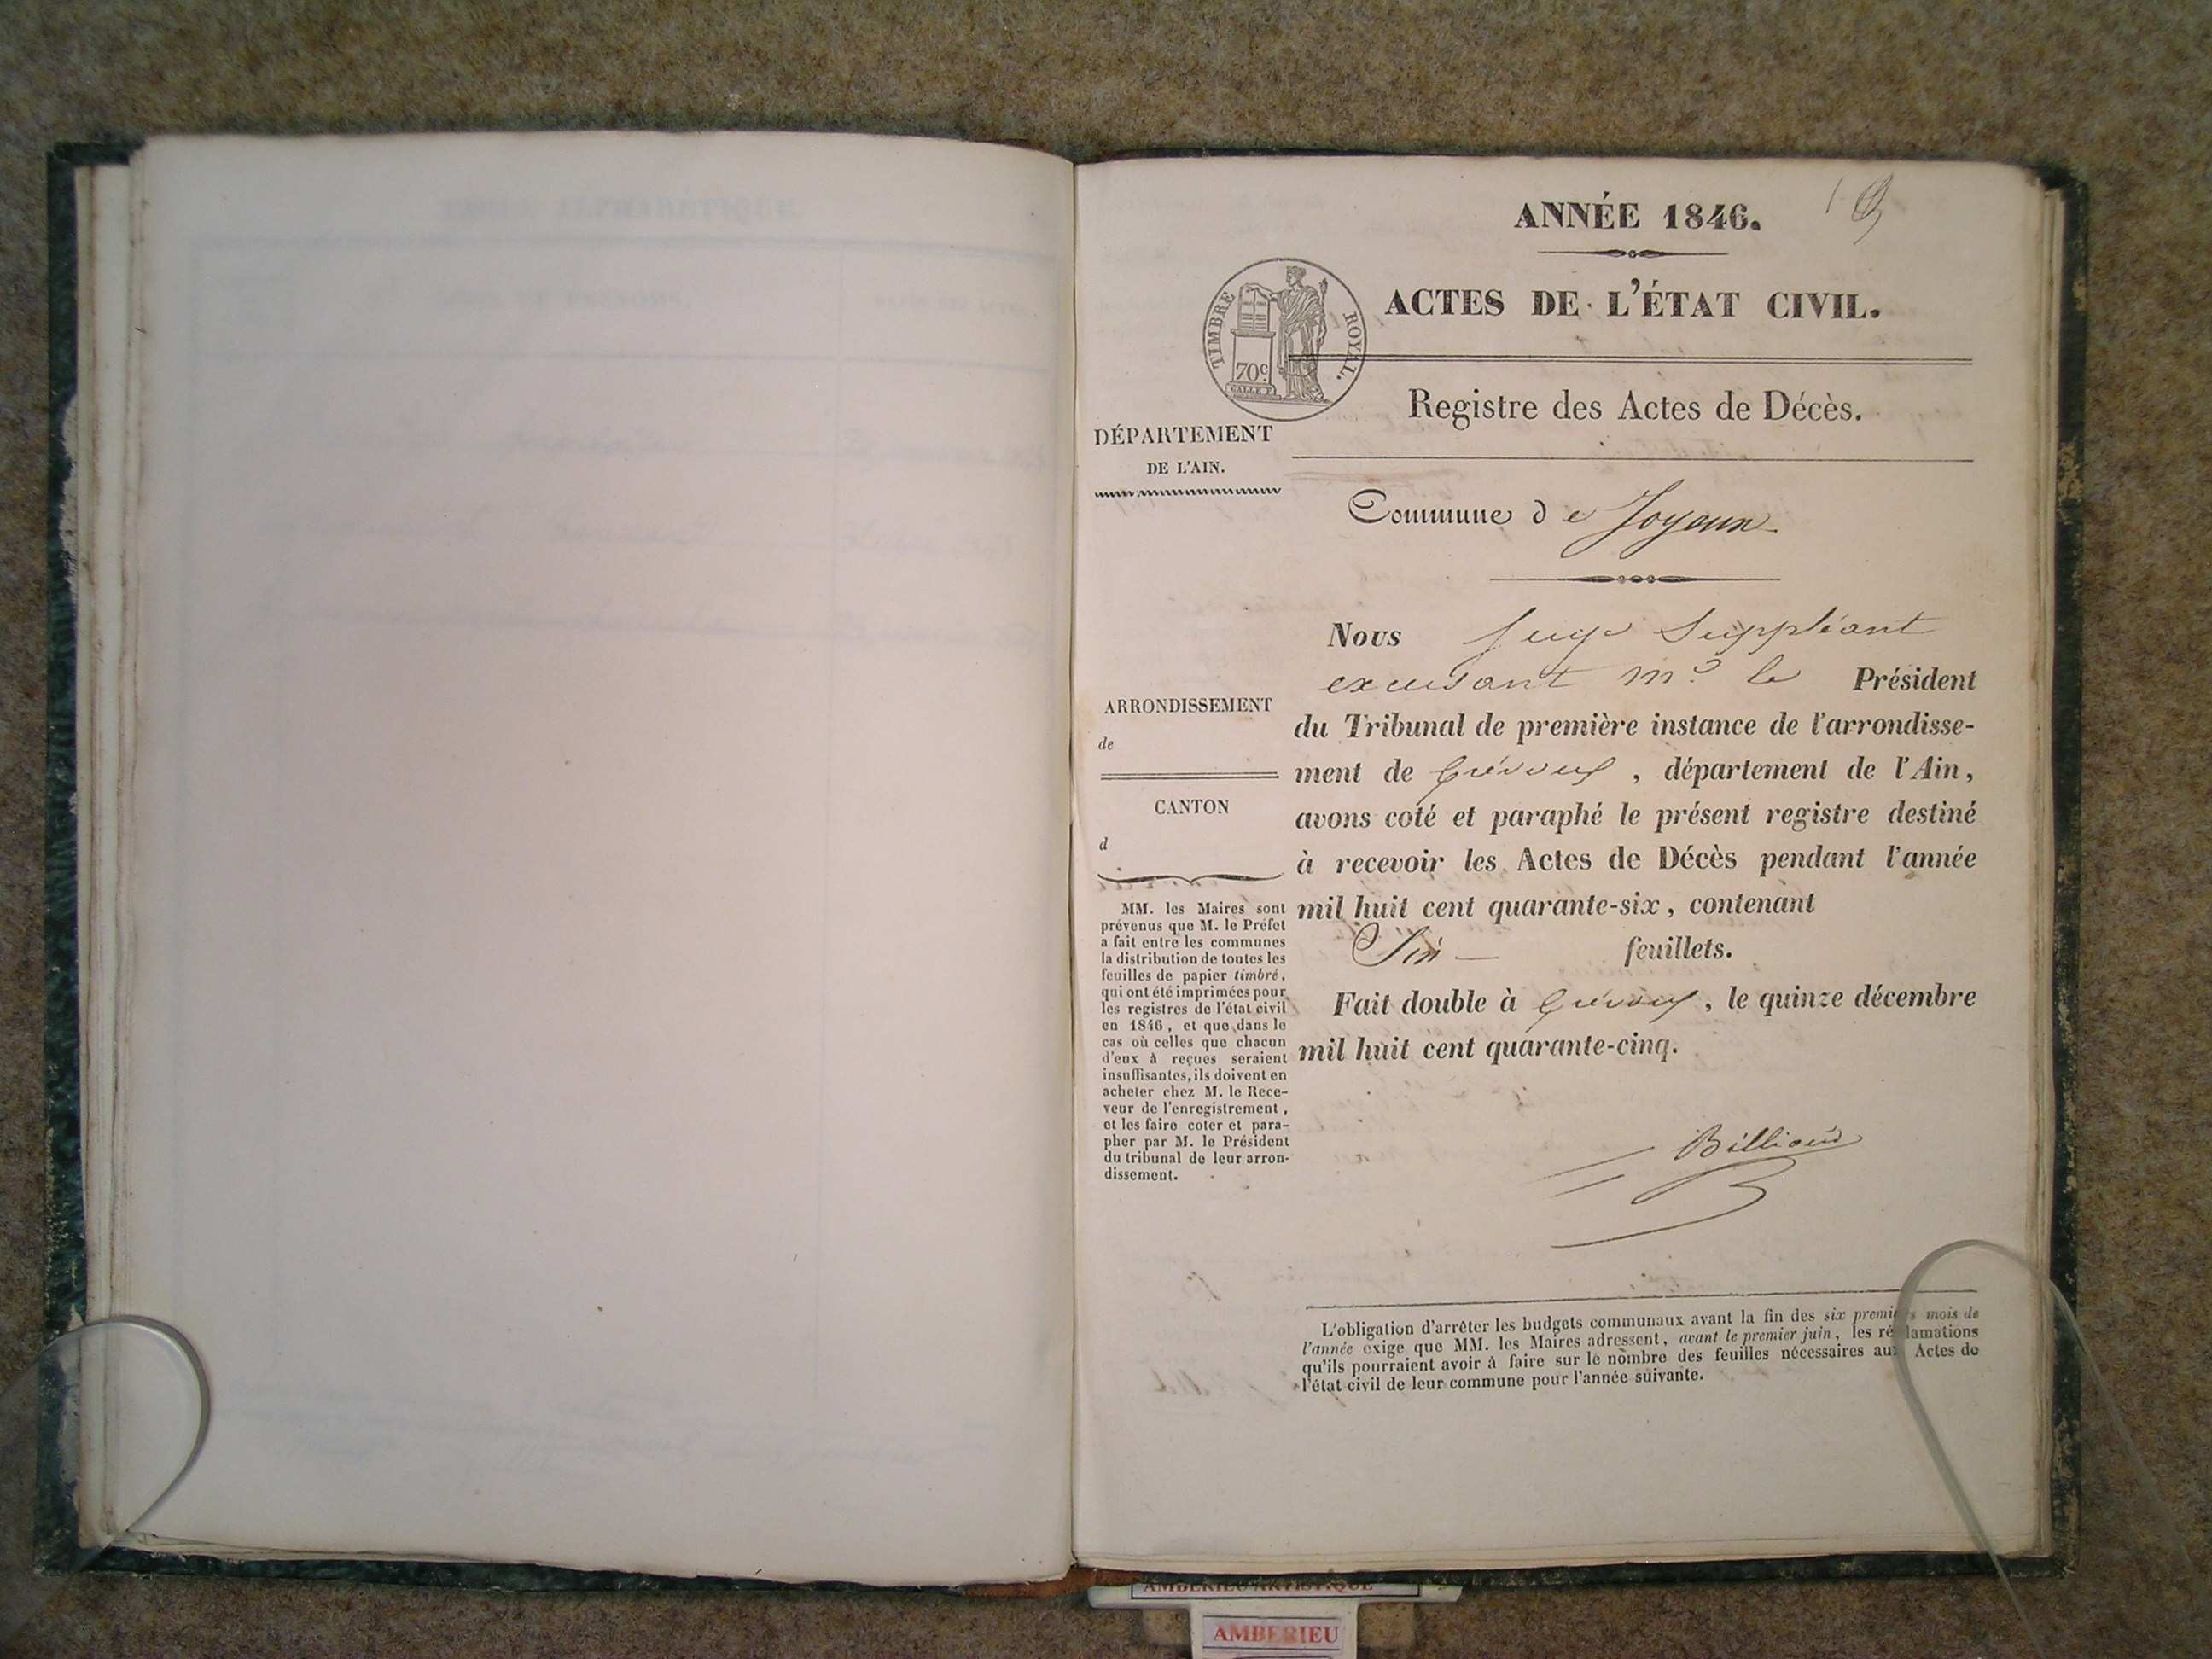 ANNÉE 1846.
ACTES DE L'ÉTAT CIVIL.
TIMBRE ROYAL.
70c
Registre des Actes de Décès.
DÉPARTEMENT
DE L'AIN.
Commune de Joyeux
Nous Juge Suppléant
excusant Mr le Président
du Tribunal de première instance de l'arrondisse-
ment de Trévoux, département de l'Ain,
avons coté et paraphé le présent registre destiné
à recevoir les Actes de Décès pendant l'année
mil huit cent quarante-six, contenant
Six feuillets.
Fait double à Trévoux, le quinze décembre
mil huit cent quarante-cinq.
Billioud
ARRONDISSEMENT
de
CANTON
d
MM. les Maires sont
prévenus que M. le Préfet
a fait entre les communes
la distribution de toutes les
feuilles de papier timbré,
qui ont été imprimées pour
les registres de l'état civil
en 1846, et que dans le
cas où celles que chacun
d'eux à reçues seraient
insuffisantes, ils doivent en
acheter chez M. le Rece-
veur de l'enregistrement,
et les faire coter et para-
pher par M. le Président
du tribunal de leur arron-
dissement.
L'obligation d'arrêter les budgets communaux avant la fin des six premiers mois de
l'année exige que MM. les Maires adressent, avant le premier juin, les réclamations
qu'ils pourraient avoir à faire sur le nombre des feuilles nécessaires aux Actes de
l'état civil de leur commune pour l'année suivante.
AMBERIEU ARTISTIQUE
AMBERIEU